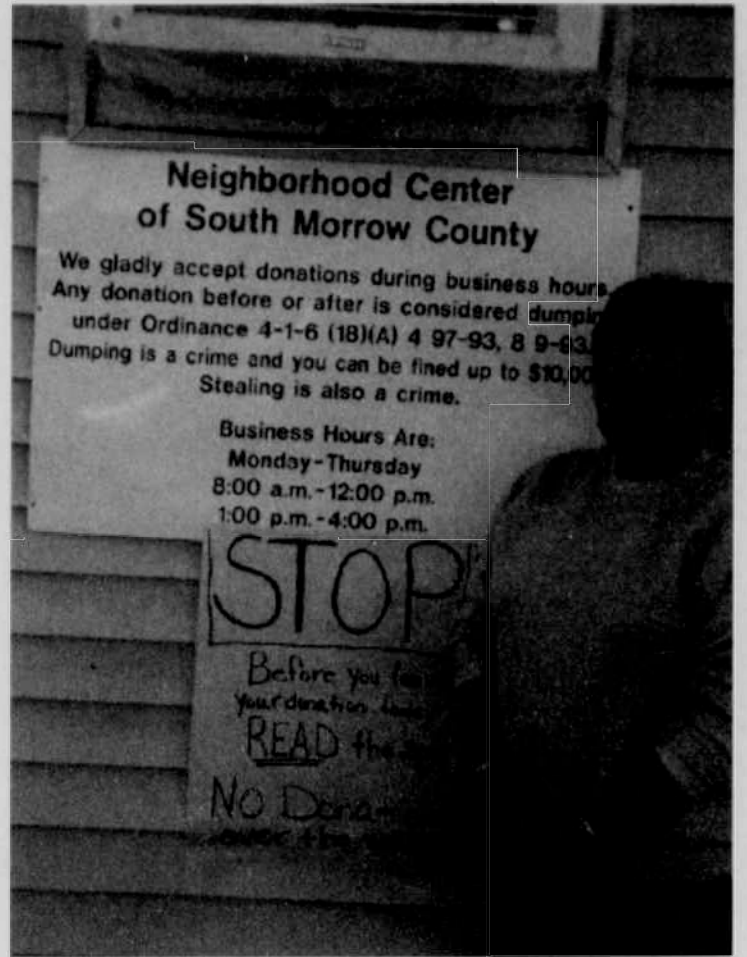 Neighborhood Center
of South Morrow County
We gladly accept donations during business hours
Any donation before or after is considered dumpin
under Ordinance 4-1-6 (18)(A) 4 97-93, 8 9-93
Dumping is a crime and you can be fined up to $10,00
Stealing is also a crime.
Business Hours Are:
Monday-Thursday
8:00 a.m.-12:00 p.m.
1:00 p.m.-4:00 p.m.
STOP!
Before you
your donation
READ the
NO Dona